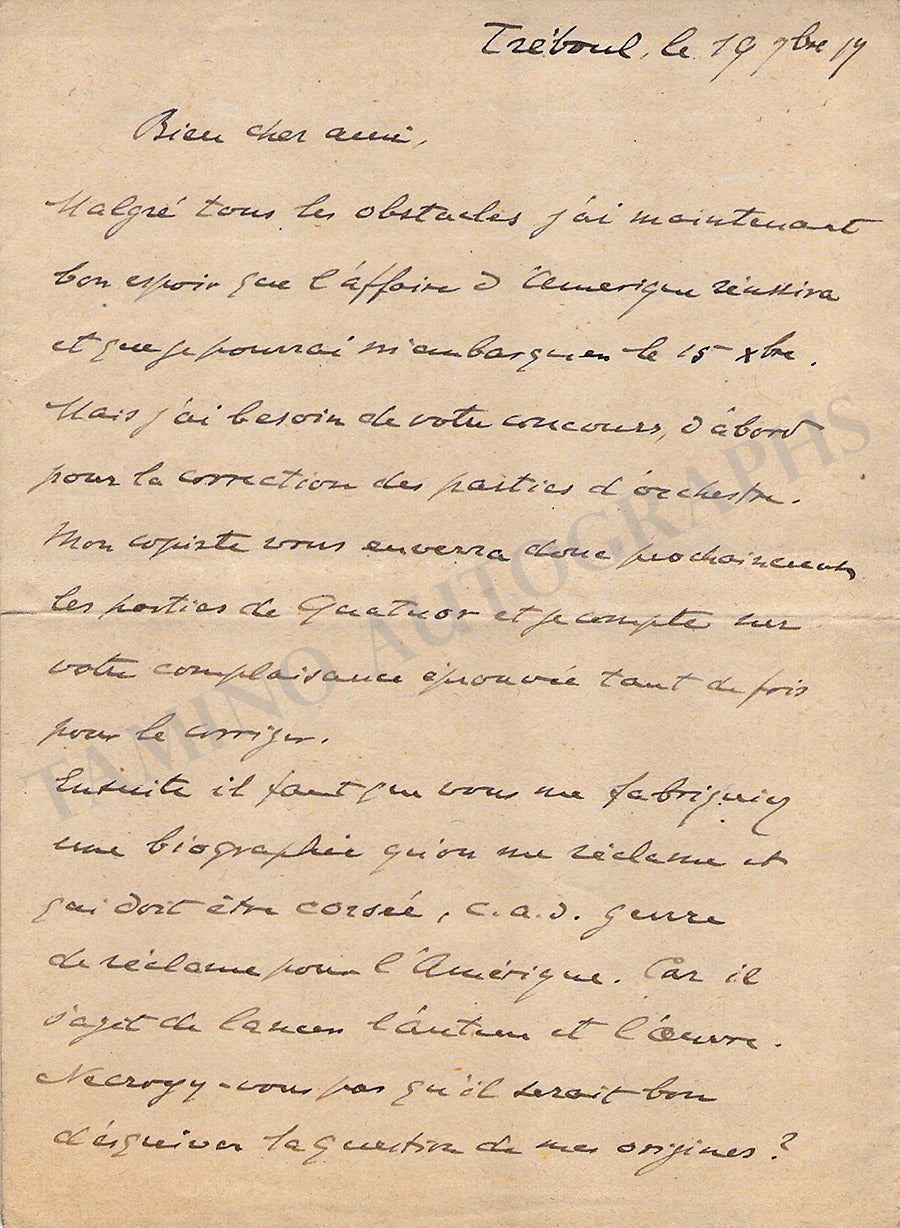 Tréboul, le 19 9bre 17
Bien cher ami,
Malgré tous les obstacles j'ai maintenant
bon espoir que l'affaire d'Amérique réussira
et que je pourrai m'embarquer le 15 xbre.
Mais j'ai besoin de votre concours, d'abord
pour la correction des parties d'orchestre.
Mon copiste vous enverra donc prochainement
les parties de Quatuor et je compte sur
votre complaisance éprouvée tant de fois
pour le corriger.
Ensuite il faut que vous me fabriquiez
une biographie qu'on me réclame et
qui doit être corsée, c.a.d. genre
de réclame pour l'Amérique. Car il
s'agit de lancer l'auteur et l'Œuvre.
Ne croyez-vous pas qu'il serait bon
d'esquiver la question de mes origines ?
TAMINO AUTOGRAPHS